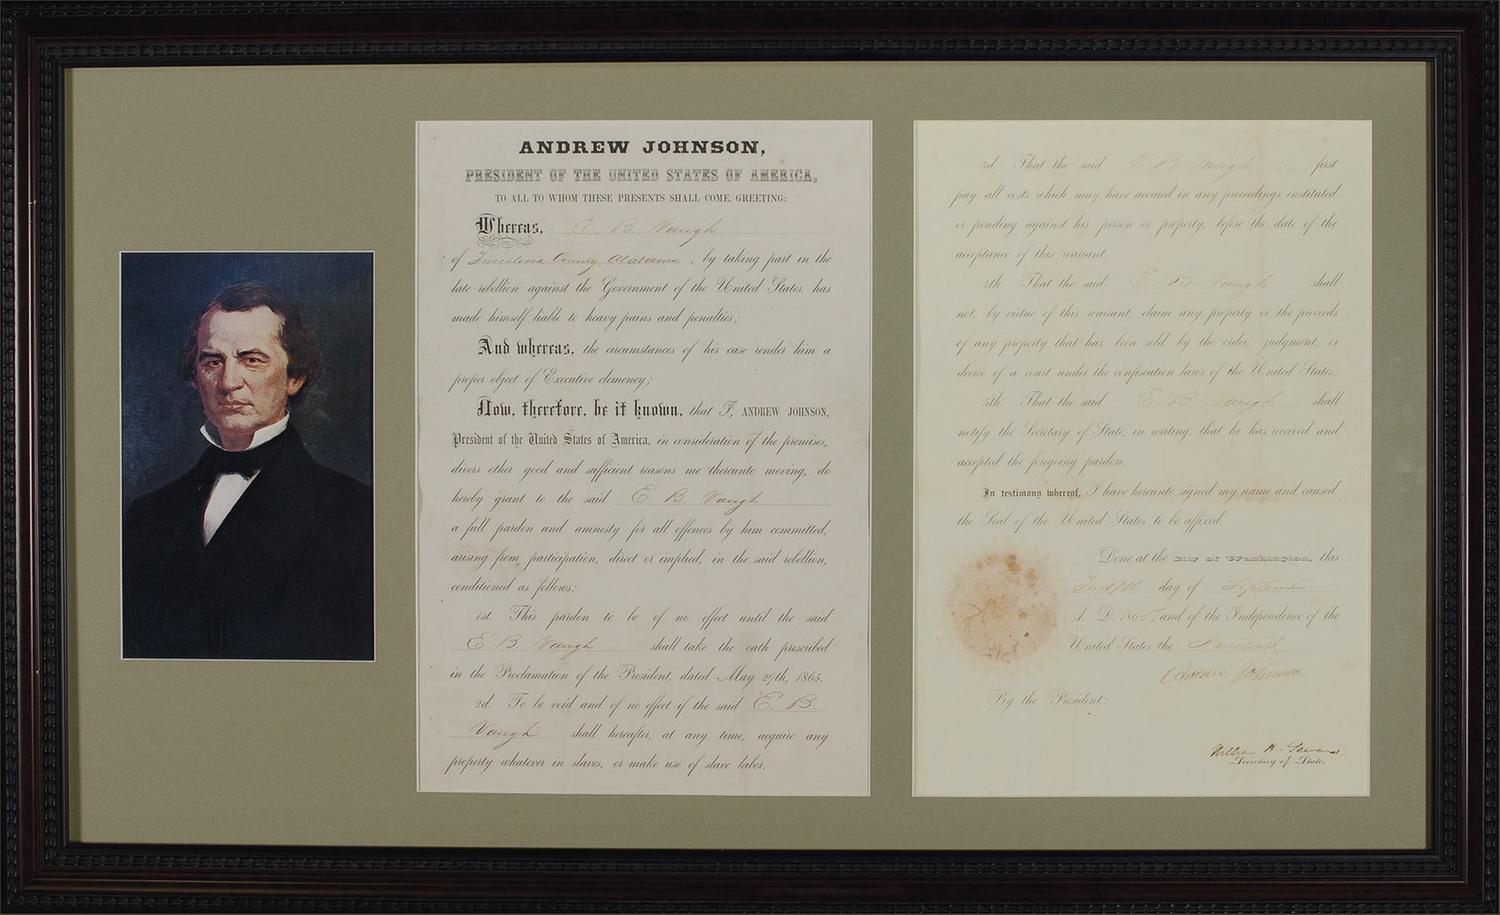 ANDREW JOHNSON,
PRESIDENT OF THE UNITED STATES OF AMERICA,
TO ALL TO WHOM THESE PRESENTS SHALL COME, GREETING:
Whereas, E. B. Vaugh
of Tuscaloosa County, Alabama, by taking part in the
late rebellion against the Government of the United States, has
made himself liable to heavy pains and penalties;
And whereas, the circumstances of his case render him a
proper object of Executive clemency;
Now, therefore, be it known, that I, ANDREW JOHNSON,
President of the United States of America, in consideration of the premises,
divers other good and sufficient reasons me thereunto moving, do
hereby grant to the said E. B. Vaugh
a full pardon and amnesty for all offences by him committed,
arising from participation, direct or implied, in the said rebellion,
conditioned as follows:
1st. This pardon to be of no effect until the said
E. B. Vaugh shall take the oath prescribed
in the Proclamation of the President, dated May 29th, 1865.
2d. To be void and of no effect if the said E. B.
Vaugh shall hereafter, at any time, acquire any
property whatever in slaves, or make use of slave labor.
3d. That the said E. B. Vaugh first
pay all costs which may have accrued in any proceedings instituted
or pending against his person or property, before the date of the
acceptance of this warrant.
4th. That the said E. B. Vaugh shall
not, by virtue of this warrant, claim any property or the proceeds
of any property that has been sold by the order, judgment, or
decree of a court under the confiscation laws of the United States.
5th. That the said E. B. Vaugh shall
notify the Secretary of State, in writing, that he has received and
accepted the foregoing pardon.
In testimony whereof, I have hereunto signed my name and caused
the Seal of the United States to be affixed.
Done at the City of Washington, this
Twelfth day of September
A. D. 1865, and of the Independence of the
United States the Ninetieth
Andrew Johnson
By the President:
William H. Seward
Secretary of State.